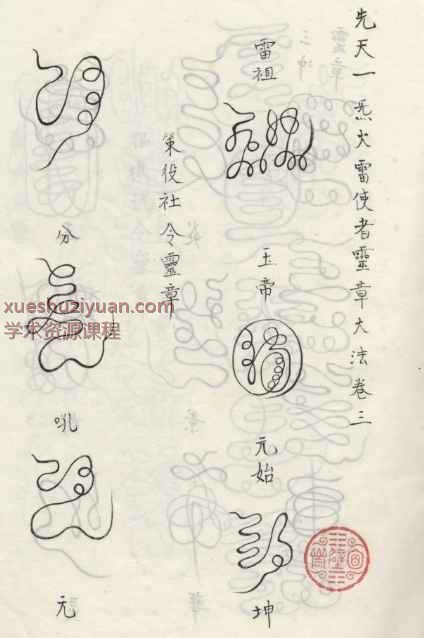 先天一炁火雷使者靈章大法卷三
雷祖
玉帝
元始
坤
策役社令靈章
分
吼
元
xueshuziyuan.com
学术资源课程